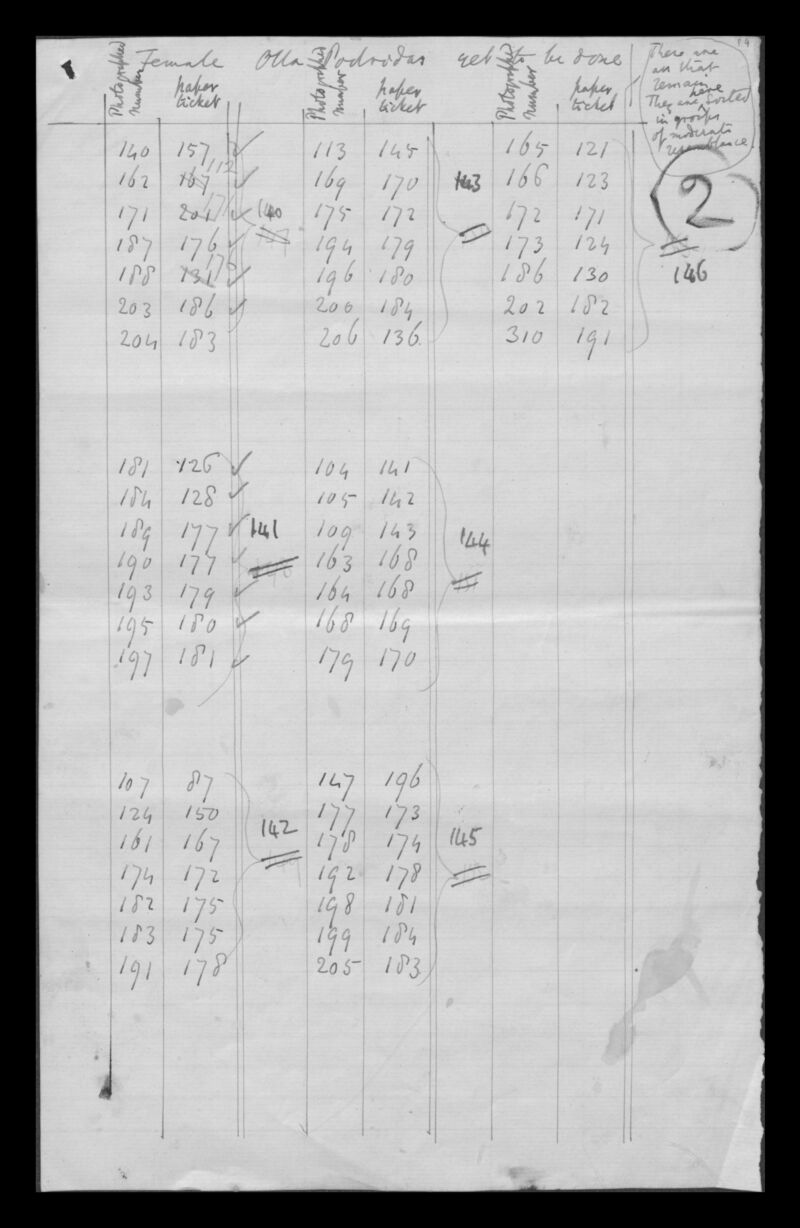 14
Female Olla Podridas yet to be done
Photographed number paper ticket Photographed number paper ticket Photographed number paper ticket
These are
all that
remain
They are here sorted
in groups
of moderate
resemblance
2
140 157 113 145 165 121
162 167 112 169 170 143 166 123
171 201 171 140 175 172 172 171
187 176 194 179 173 124
188 131 178 196 180 186 130 146
203 186 200 184 202 182
204 183 206 136 310 191
181 126 104 141
184 128 105 142
189 177 141 109 143 144
190 177 163 168
193 179 164 168
195 180 168 169
197 181 179 170
107 87 147 196
124 150 177 173
161 167 142 178 174 145
174 172 192 178
182 175 198 181
183 175 199 184
191 178 205 183